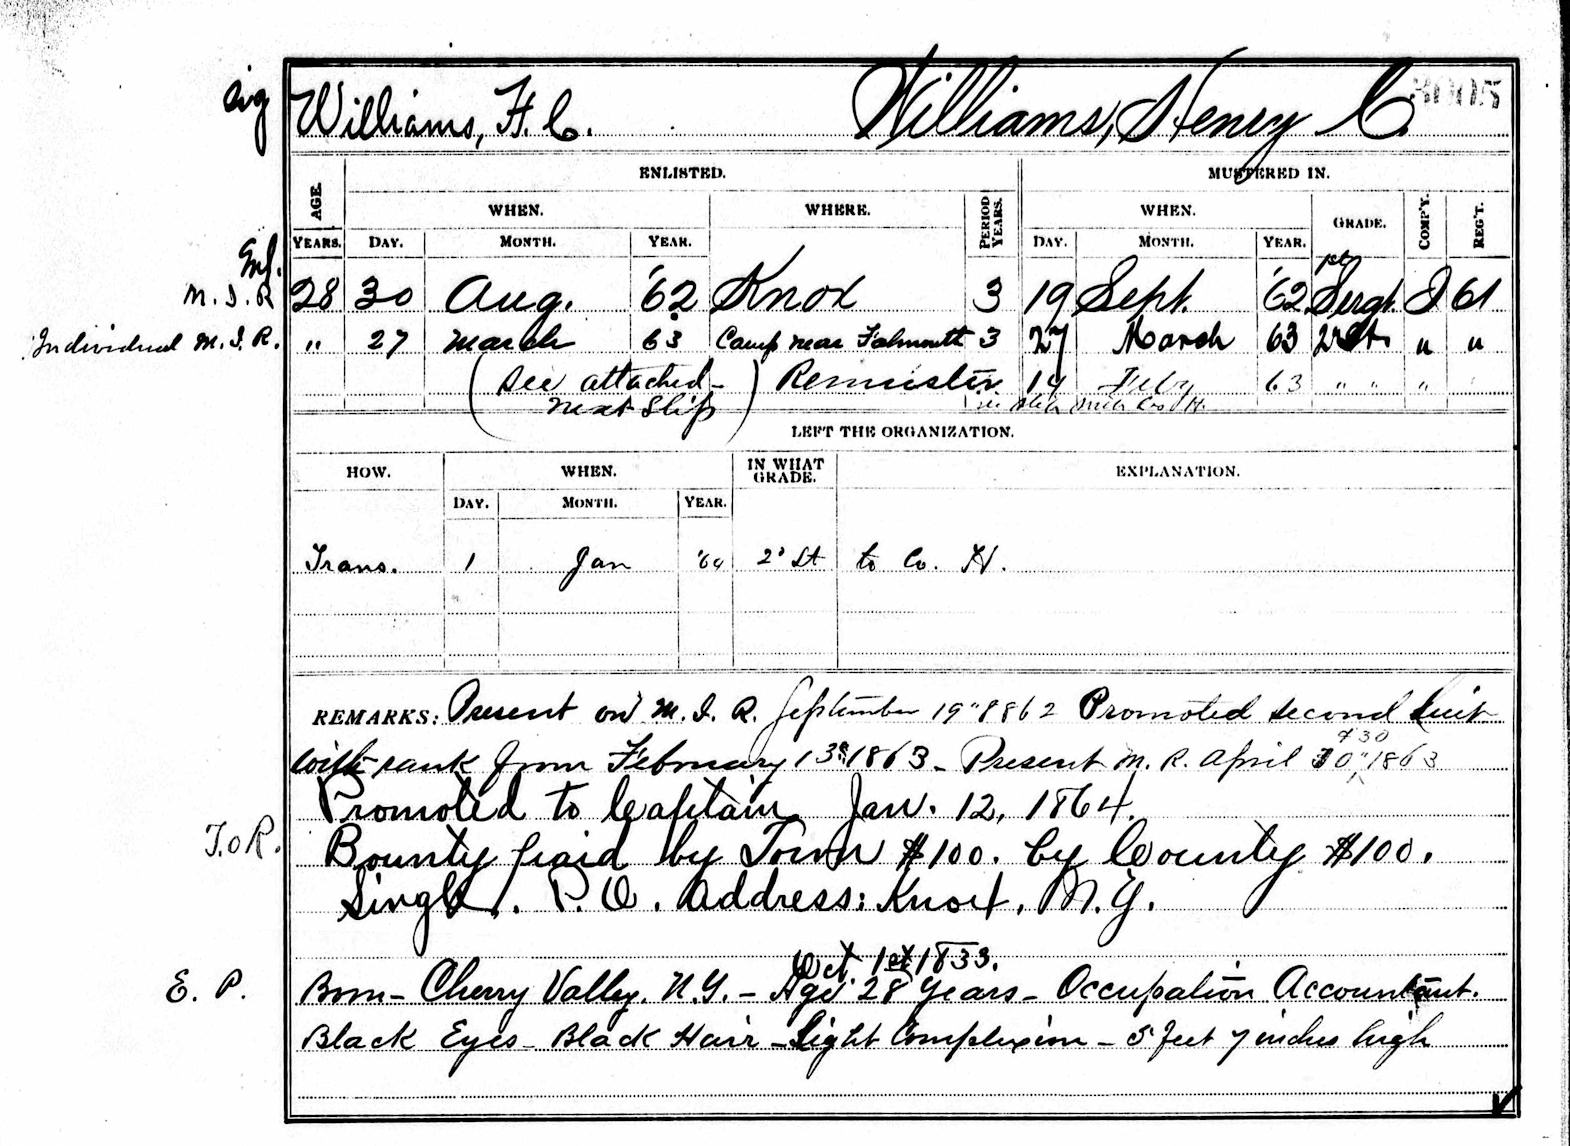 sig Williams, H. C. Williams, Henry C. 3005
ENLISTED. MUSTERED IN.
AGE. WHEN. WHERE. PERIOD YEARS. WHEN. GRADE. COMP'Y. REG'T.
YEARS. DAY. MONTH. YEAR. DAY. MONTH. YEAR.
M. I. R 28 30 Aug. '62 Knox 3 19 Sept. '62 1st Sergt. I 61
Individual M. I. R. " 27 March 63 Camp near Falmouth 3 27 March 63 2d Lt " "
(See attached Remuster 14 Feby 63 " " "
next slip)
LEFT THE ORGANIZATION.
HOW. WHEN. IN WHAT GRADE. EXPLANATION.
DAY. MONTH. YEAR.
Trans. 1 Jan '64 2d Lt to Co. H.
REMARKS: Present on M. I. R. September 19" 1862 Promoted second Lieut
with rank from February 13" 1863 - Present M. R. April 10" 1863
Promoted to Captain Jan. 12, 1864.
T. of R. Bounty paid by Town $100. by County $100.
Single. P. O. Address: Knox, N. Y.
Oct. 1st 1833.
E. P. Born - Cherry Valley. N.Y. - Age 28 years - Occupation Accountant.
Black Eyes - Black Hair - Light Complexion - 5 feet 7 inches high